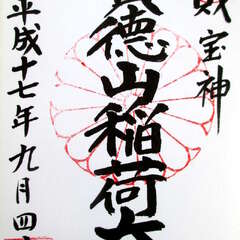 財宝神
徳山稲荷大
平成十七年九月四